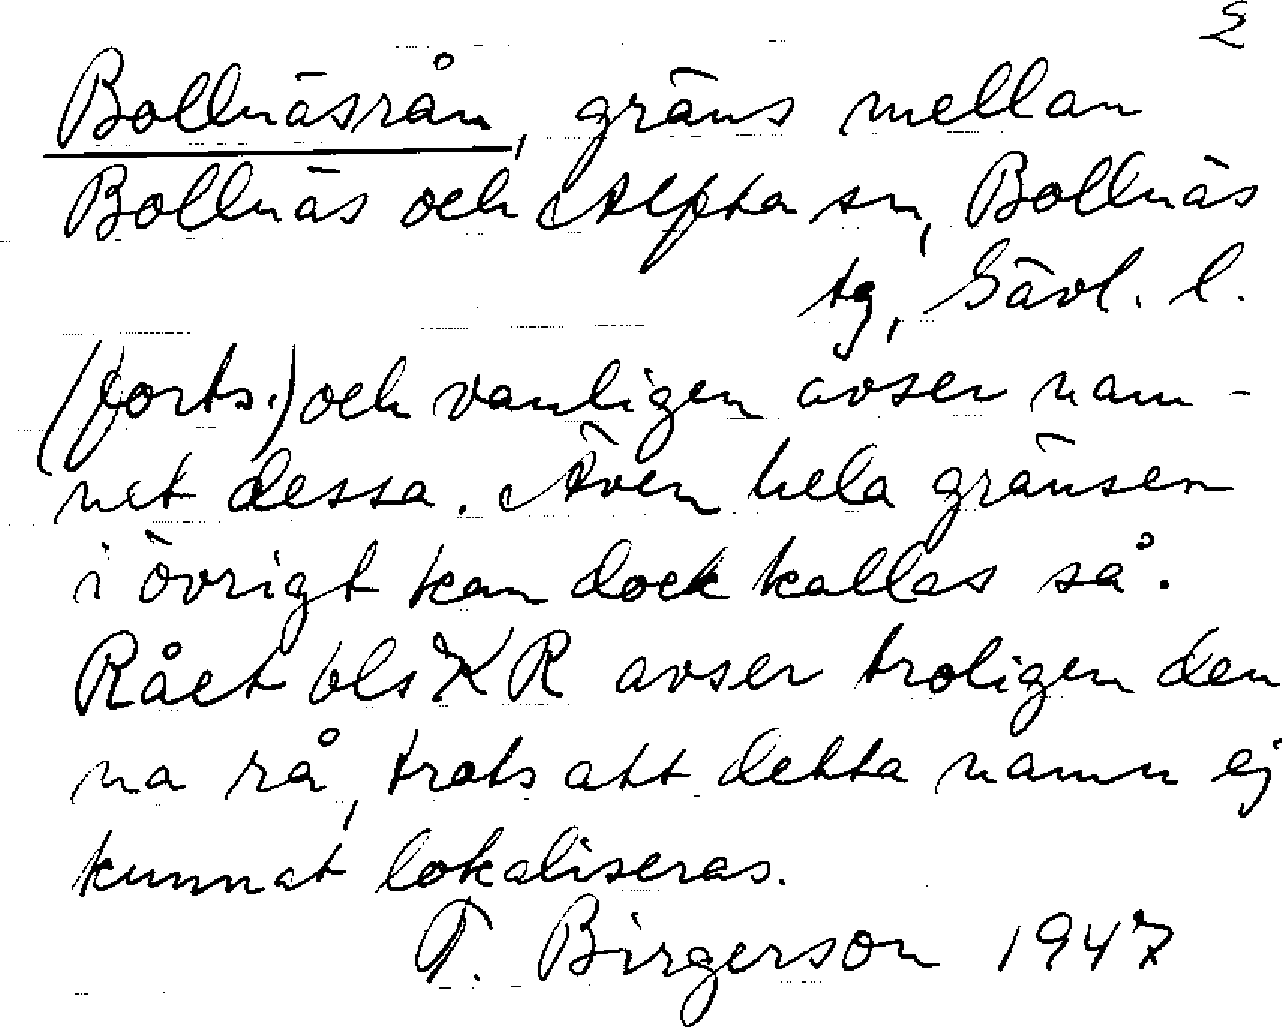 2
Bollnäsrån, gräns mellan
Bollnäs och Alfta sn, Bollnäs
tg, Gävl. l.
(forts.) och vanligen avser nam-
net dessa. Även hela gränsen
i övrigt kan dock kallas så.
Rået bls XR avser troligen den
na rå, trots att detta namn ej
kunnat lokaliseras.
T. Birgerson 1947